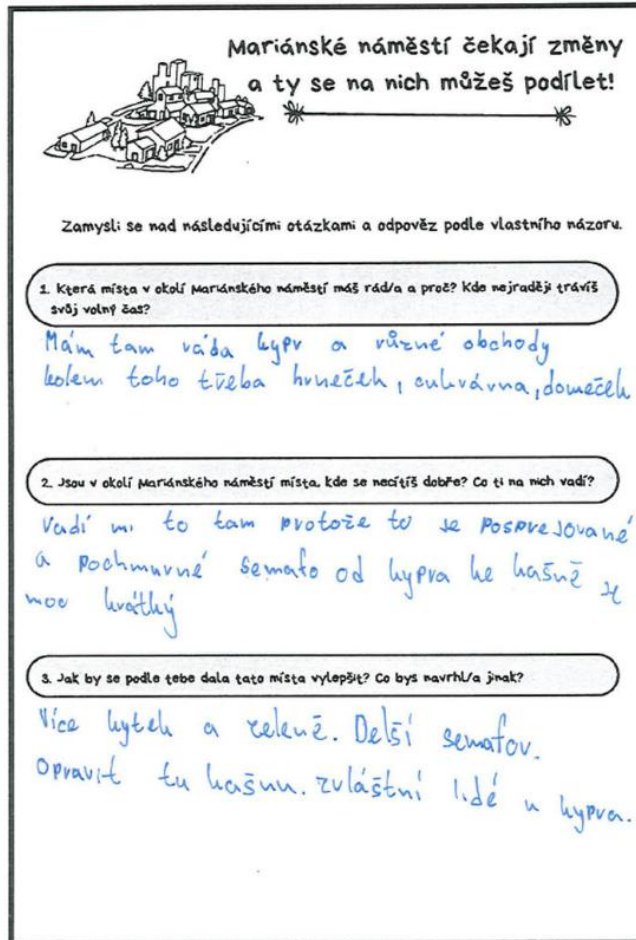 Mariánské náměstí čekají změny
a ty se na nich můžeš podílet!
Zamysli se nad následujícími otázkami a odpověz podle vlastního názoru.
1. Která místa v okolí Mariánského náměstí máš rád/a a proč? Kde nejraději trávíš
svůj volný čas?
Mám tam ráda kypr a různé obchody
kolem toho třeba hrneček, cukrárna, domeček
2. Jsou v okolí Mariánského náměstí místa, kde se necítíš dobře? Co ti na nich vadí?
Vadí mi to tam protože to je posprejované
a pochmurné semafo od kypra ke kašně je
moc krátký
3. Jak by se podle tebe dala tato místa vylepšit? Co bys navrhl/a jinak?
Více kytek a zeleně. Delší semafor.
Opravit tu kašnu. zvláštní lidé u kypra.